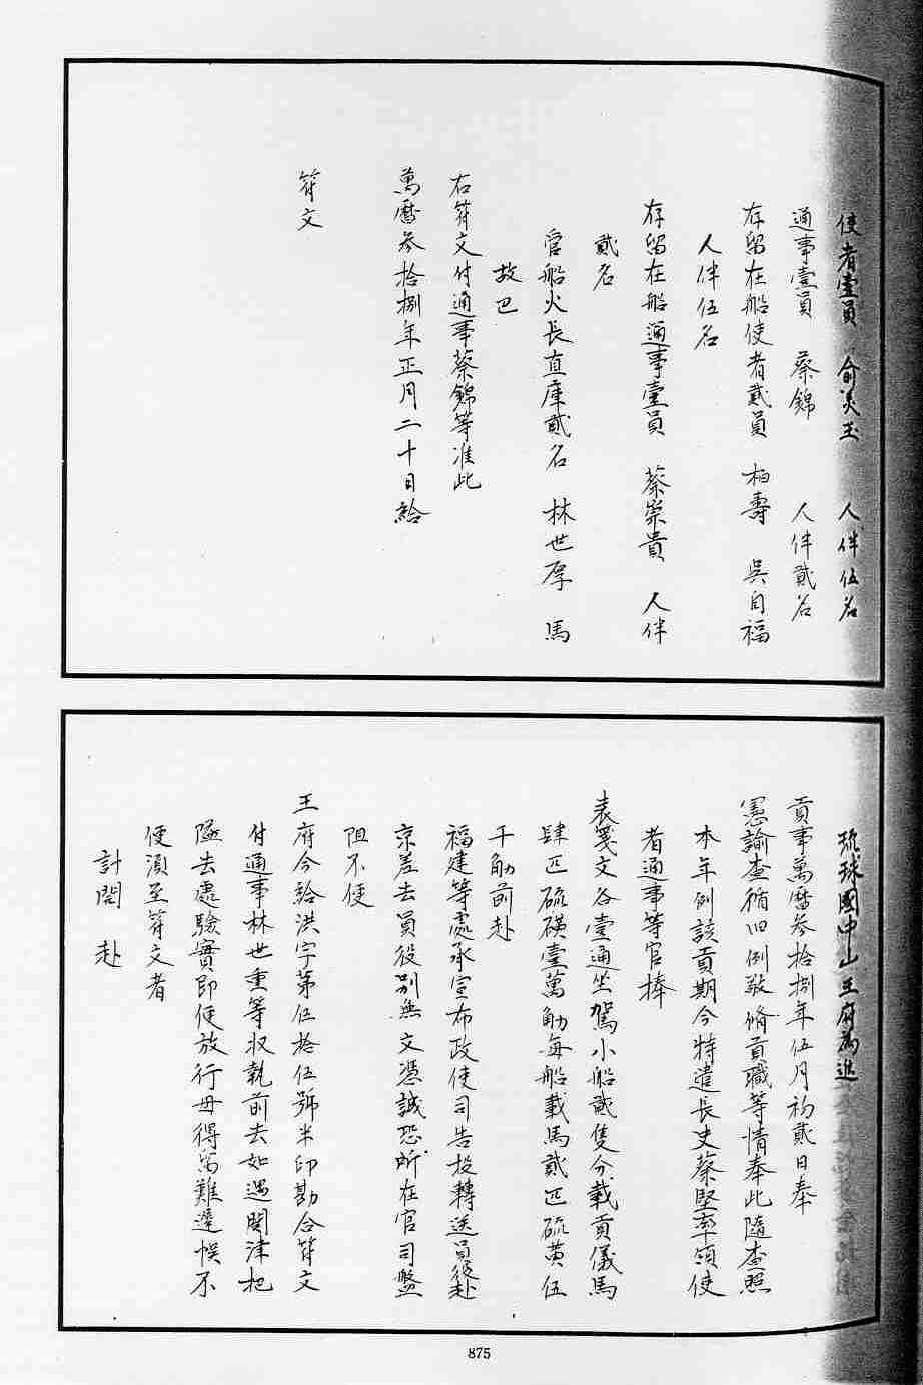 使者壹員 俞美玉 人伴伍名
通事壹員 蔡錦 人伴貳名
存留在船使者貳員 柏壽 吳自福
人伴伍名
存留在船通事壹員 蔡崇貴 人伴
貳名
管船火長直庫貳名 林世厚 馬
故巴
右符文付通事蔡錦等准此
萬曆叄拾捌年正月二十日給
符文
琉球國中山王府為進
貢事萬曆叄拾捌年伍月初貳日奉
憲諭查循旧例敬脩貢職等情奉此隨查照
本年例該貢期今特遣長史蔡堅率領使
者通事等官捧
表箋文各壹通坐駕小船貳隻分載貢儀馬
肆匹硫磺壹萬觔每船載馬貳匹硫黃伍
千觔前赴
福建等處承宣布政使司告投轉送員役赴
京差去員役別無文憑誠恐所在官司盤
阻不便
王府今給洪字第伍拾伍號半印勘合符文
付通事林世重等收執前去如遇関津把
隘去處驗實即便放行毋得留難違悞不
便須至符文者
計開赴
875